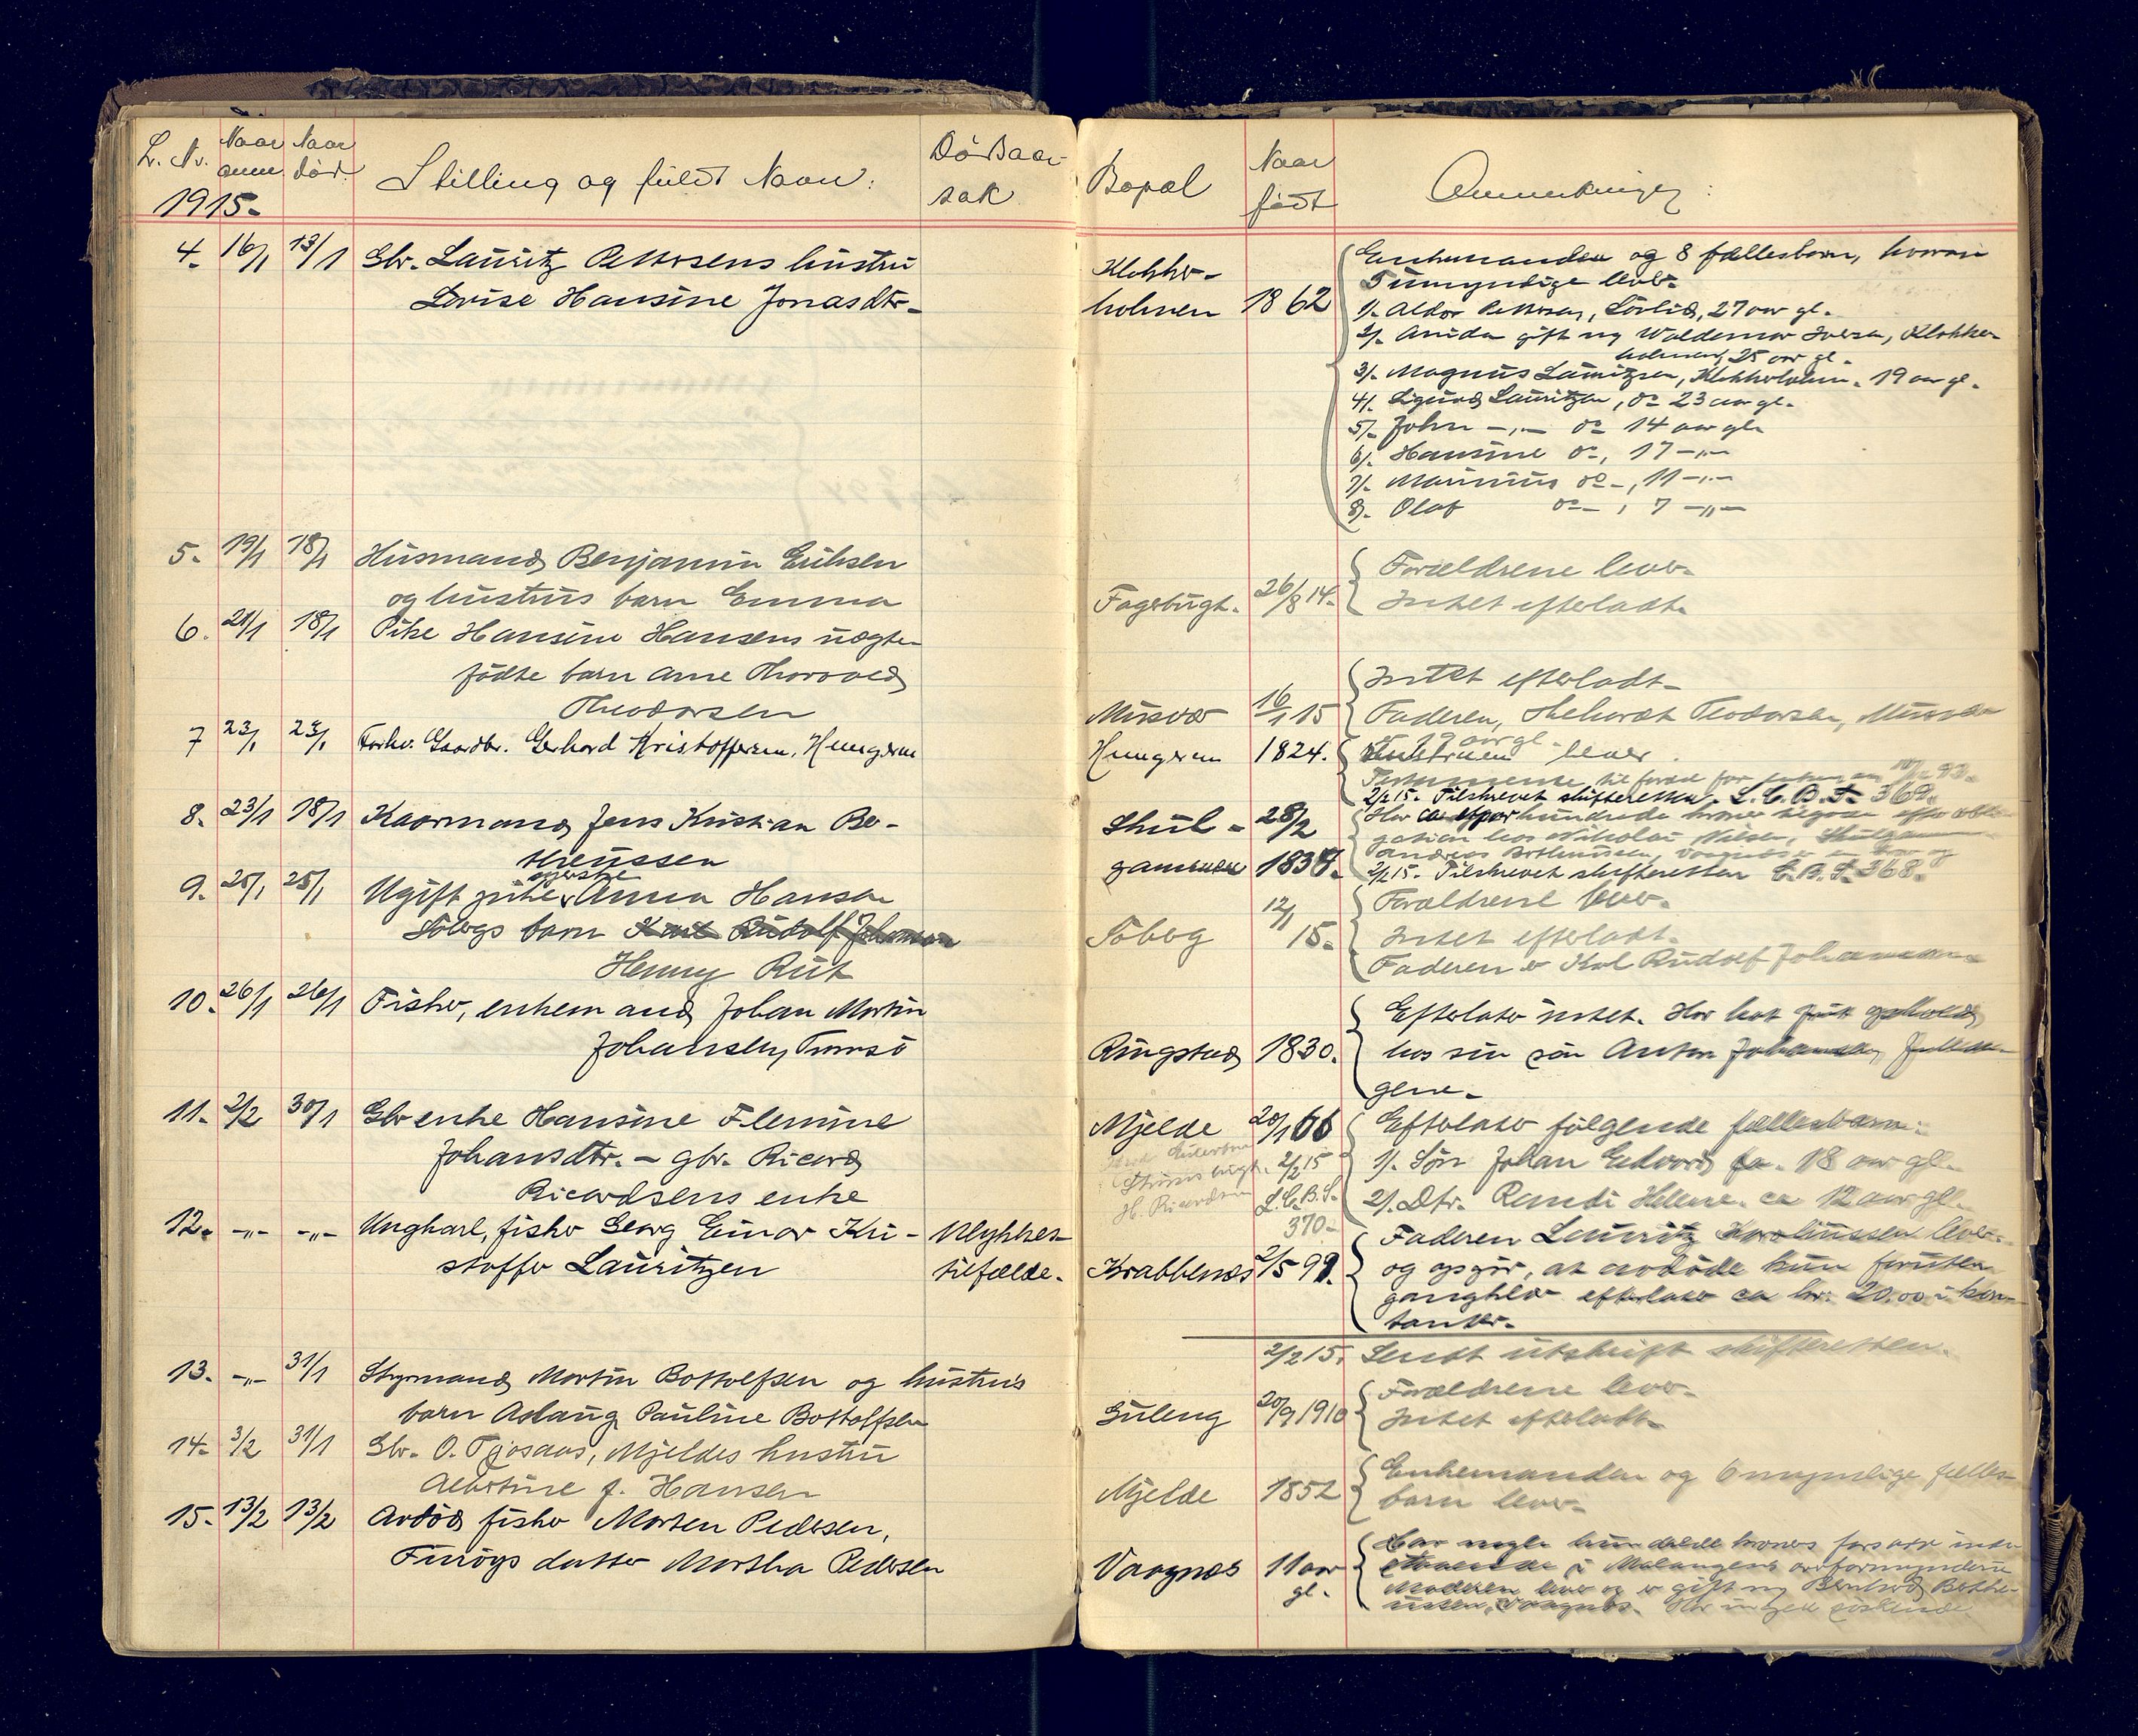 L. Nr. Naar anm. Naar død. Stilling og fuldt Navn: Dødsaar-
sak
1915.
4. 16/1 13/1 Gbr. Lauritz Pettersens hustru
Lovise Hansine Jonasdtr.
5. 19/1 18/1 Husmand Benjamin Eriksen
og hustrus barn Emma
6. 21/1 18/1 Pike Hansine Hansens uægte
fødte barn Arne Thorvald
Theodorsen
7 23/1 23/1 Forhv. Gaardbr. Gerhard Kristoffersen, Hungeren
8. 23/1 18/1 Kaarmand Jens Kristian Ber-
theussen
9. 25/1 25/1 Ugift pike Anna Hansen
Tobergs barn Karl Rudolf Johansen
Henny Rut
10. 26/1 26/1 Fisker, enkemand Johan Martin
Johansen, Tromsø
11. 2/2 30/1 Gbr enke Hansine Elemine
Johansdtr. - gbr. Ricard
Ricardsens enke
12. -"- -"- Ungkarl, fisker Georg Einar Kri- Ulykkes-
stoffer Lauritzen tilfælde.
13. -"- 31/1 Styrmand Martin Bottolfsen og hustrus
barn Aslaug Pauline Bottolfsen
14. 3/2 31/1 Gbr. O. Tjosaas, Mjeldes hustru
Albertine f. Hansen
15. 13/2 13/2 Avdød fisker Morten Pedersen,
Finøys datter Martha Pedersen
Bopæl Naar født Anmerkninger:
Klokker-
holmen 1862
Enkemanden og 8 fællesbarn, hvorav
5 umyndige lever.
1/. Aldor Pettersen, Sørlid, 27 aar gl.
2/. Anida gift m/ Waldemar Iversen, Klokker-
holmen, 25 aar gl.
3/. Magnus Lauritzsen, Klokkerholmen. 19 aar gl.
4/. Sigurd Lauritzen, do 23 aar gl.
5/. John -"- do 14 aar gl.
6/. Hansine do, 17 -"-
7/. Marinius do, 11 -"-
8/. Olaf do, 7 -"-
Fagerbugt. 26/8 14.
Forældrene lever.
Intet efterladt.
Musvær 16/1 15
Intet efterladt.
Faderen, Theodorsen, Musvær
er 19 aar gl.
Hungeren 1824. Hustruen lever.
2/2 15. Tilskrevet skifteretten. L.C.B.S. 369.
Skul-
gammen 28/2 1838.
Har et par hundrede kroner
hos Nikolai Nilsen,
2/2 15. Tilskrevet skifteretten C.B.S. 368.
Toberg 12/1 15.
Forældrene lever.
Intet efterladt.
Faderen er Karl Rudolf Johansen
Ringstad 1830.
Efterlater intet. Har hat frit ophold
hos sin søn Anton Johansen,
gene.
Mjelde 20/1 66
Efterlater følgende fællesbarn:
1/. Søn Johan Edvard ca. 18 aar gl.
2/2 15
L.C.B.S.
370.
2/. Dtr. Randi Helene. ca 12 aar gl.
Krabbenæs 2/5 99.
Faderen Lauritz Karoliussen lever
og opgir, at avdøde kun foruten
gangklær efterlater ca kr. 20.00 i kon-
tanter.
2/2 15. Sendt utskrift skifteretten.
Guleng 20/9 1910
Forældrene lever.
Intet efterladt.
Mjelde 1852
Enkemanden og 6 myndige fælles-
barn lever.
Vaagnæs 11 aar
gl.
Har nogle hundrede kroner
i Malangens overformynderi
Moderen lever og er gift m/ Bernhard Berthe-
ussen, Vaagnæs. Har ingen søskende